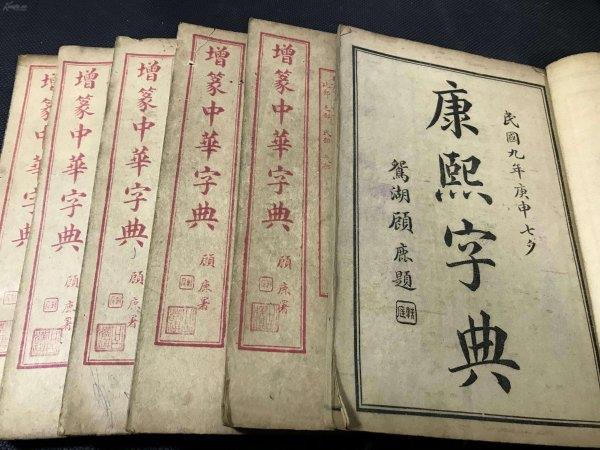 民國九年庚申七夕
康熙字典
鴛湖顧題
增篆中華字典
顧署
增篆中華字典
顧署
增篆中華字典
顧署
增篆中華字典
顧署
增篆中華字典